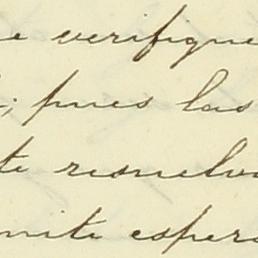 e verifique
; pues las
te resuelva
mite espera